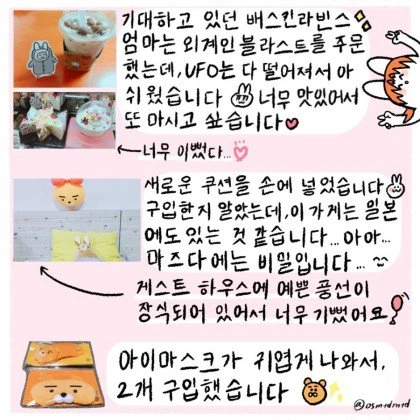 기대하고 있던 배스킨라빈스
엄마는 외계인 블라스트를 주문
했는데, UFO는 다 떨어져서 아
쉬웠습니다 너무 맛있어서
또 마시고 싶습니다
너무 이뻤다...
새로운 쿠션을 손에 넣었습니다
구입한지 알았는데, 이 가게는 일본
에도 있는 것 같습니다... 아아...
마즈다에는 비밀입니다...
게스트 하우스에 예쁜 풍선이
장식되어 있어서 너무 기뻤어요
아이마스크가 귀엽게 나와서,
2개 구입했습니다